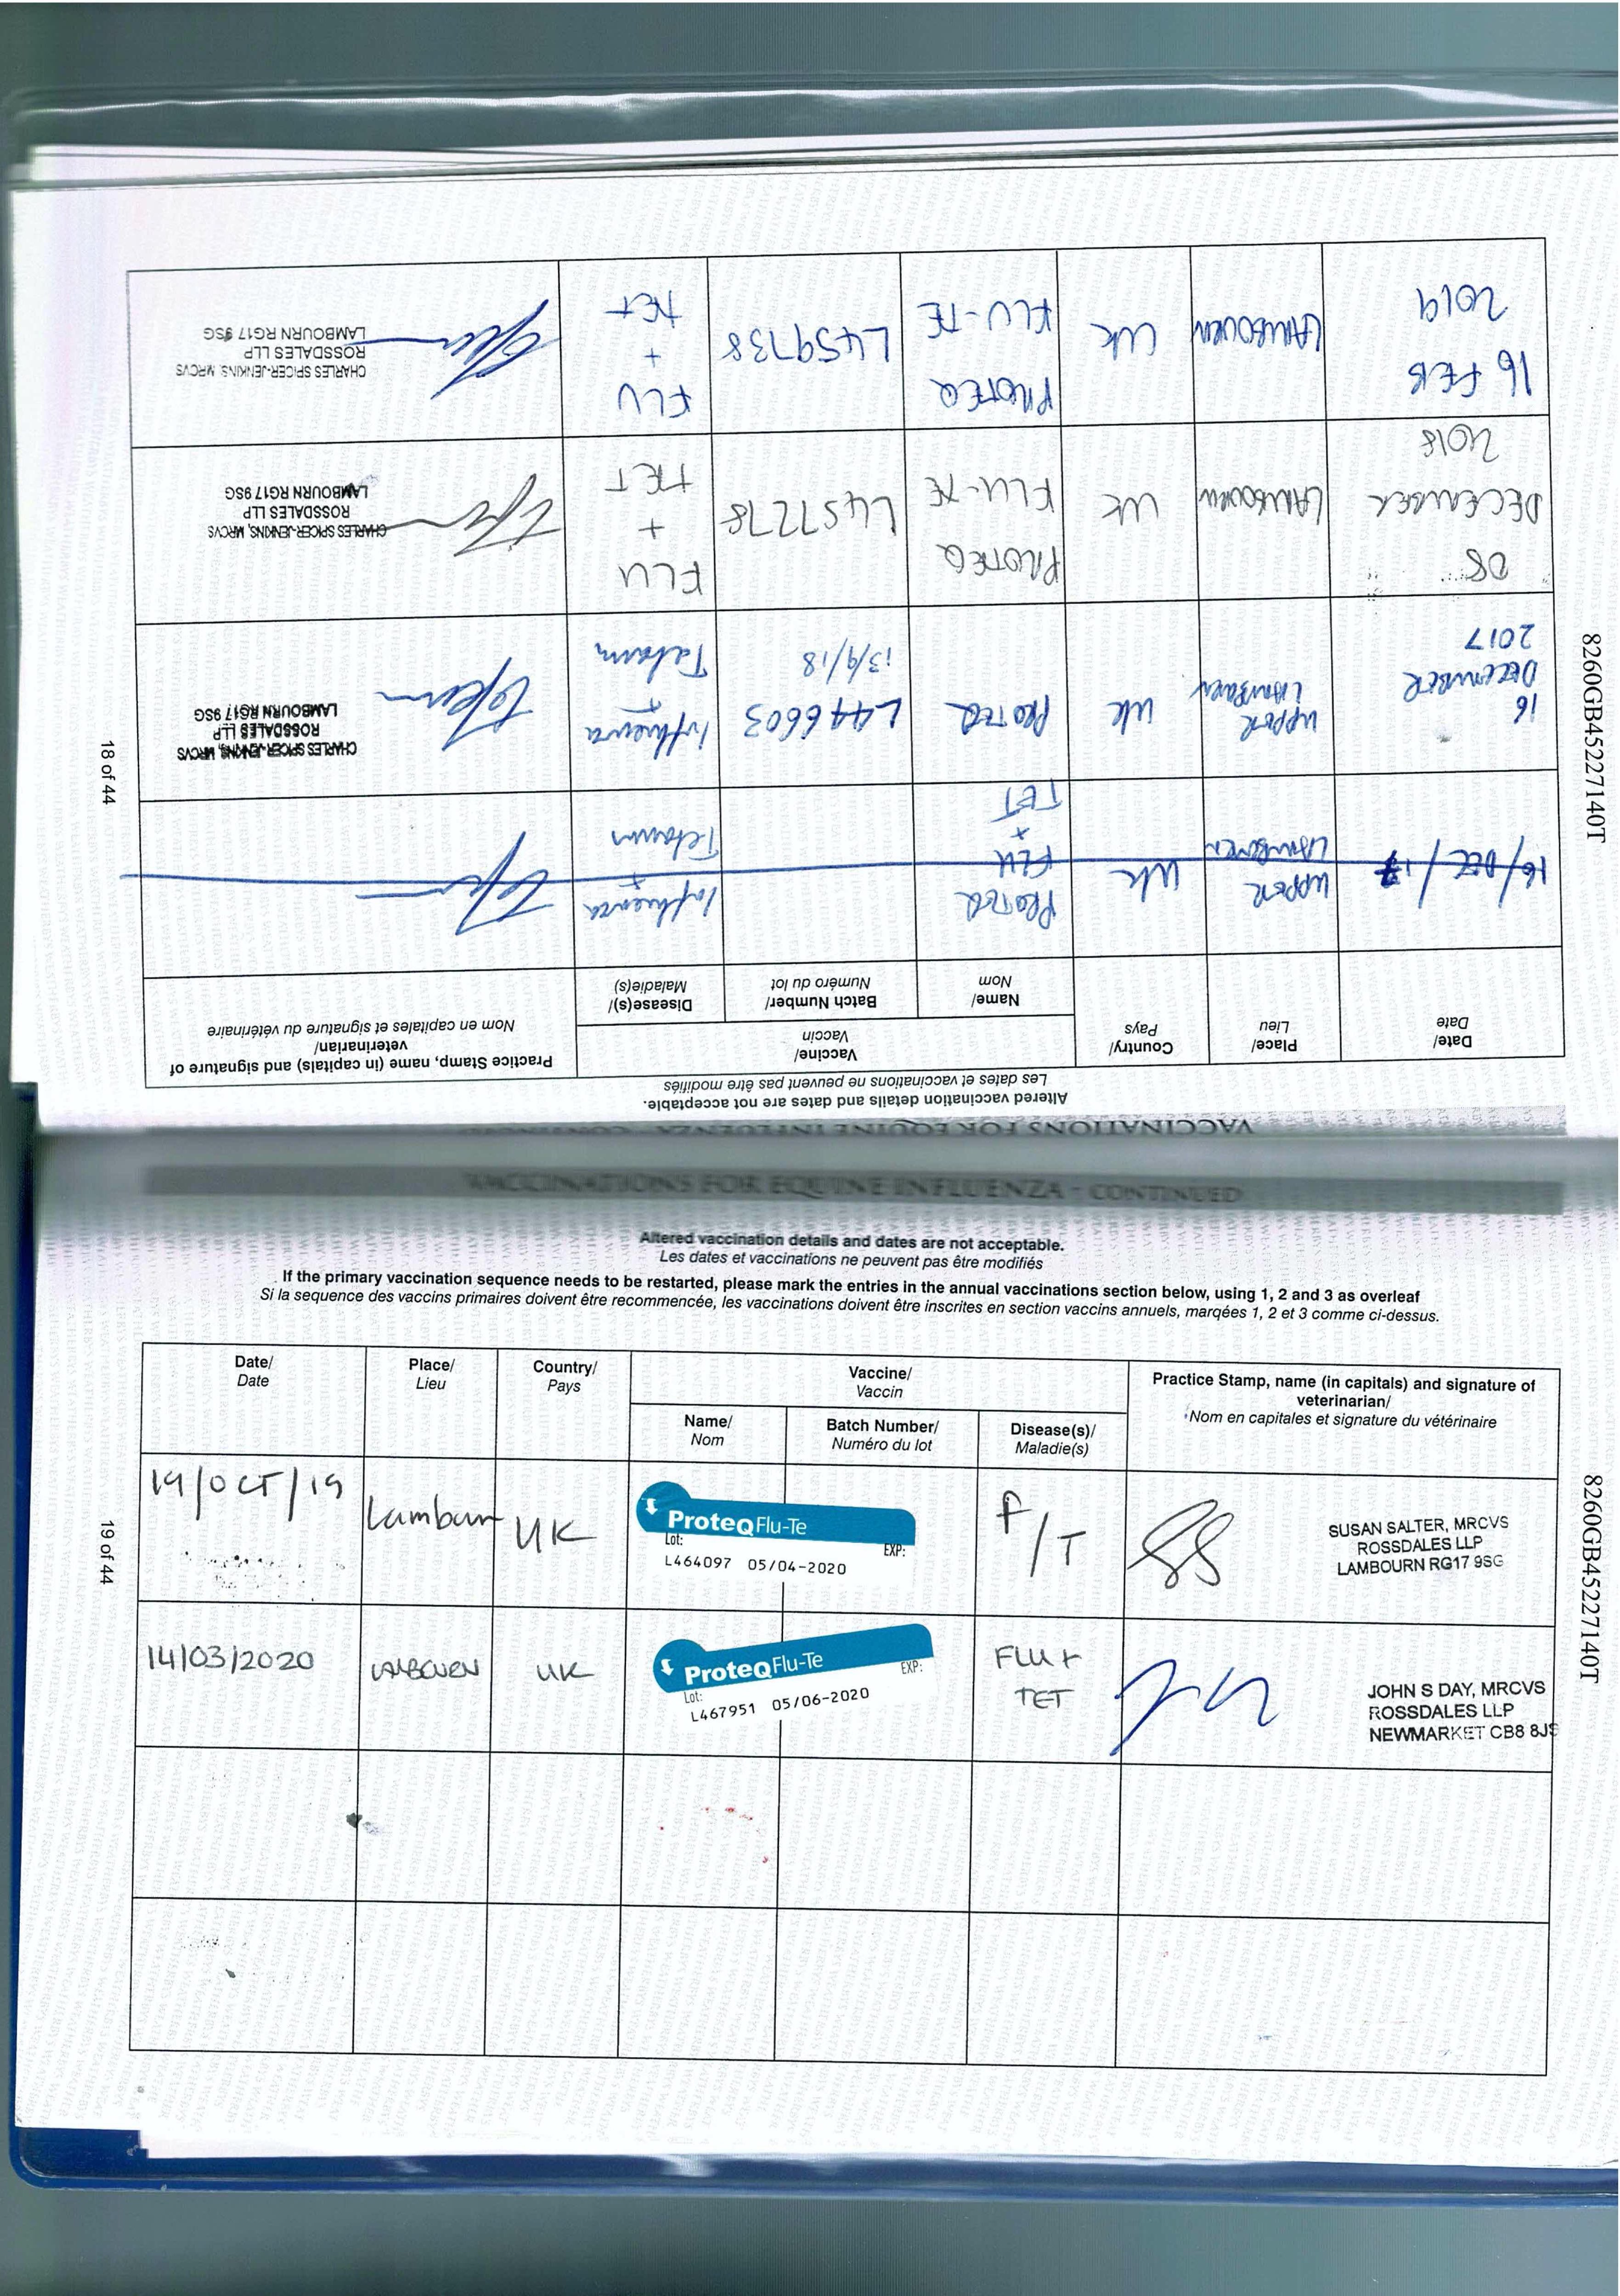 VACCINATIONS FOR EQUINE INFLUENZA - CONTINUED
Altered vaccination details and dates are not acceptable.
Les dates et vaccinations ne peuvent pas être modifiés
Date/
Date
Place/
Lieu
Country/
Pays
Vaccine/
Vaccin
Name/
Nom
Batch Number/
Numéro du lot
Disease(s)/
Maladie(s)
Practice Stamp, name (in capitals) and signature of
veterinarian/
Nom en capitales et signature du vétérinaire
16/DEC/17
UPPER
LAMBOURN
UK
PROTEQ
FLU
+
TET
Influenza
+
Tetanus
16
DECEMBER
2017
UPPER
LAMBOURN
UK
PROTEQ
L446603
13/9/18
Influenza
+
Tetanus
CHARLES SPICER-JENKINS, MRCVS
ROSSDALES LLP
LAMBOURN RG17 9SG
08
DECEMBER
2018
LAMBOURN
UK
PROTEQ
FLU-TE
L457278
FLU
+
TET
CHARLES SPICER-JENKINS, MRCVS
ROSSDALES LLP
LAMBOURN RG17 9SG
16 FEB
2019
LAMBOURN
UK
PROTEQ
FLU-TE
L459738
FLU
+
TET
CHARLES SPICER-JENKINS, MRCVS
ROSSDALES LLP
LAMBOURN RG17 9SG
18 of 44
8260GB45227140T
VACCINATIONS FOR EQUINE INFLUENZA - CONTINUED
Altered vaccination details and dates are not acceptable.
Les dates et vaccinations ne peuvent pas être modifiés
If the primary vaccination sequence needs to be restarted, please mark the entries in the annual vaccinations section below, using 1, 2 and 3 as overleaf
Si la sequence des vaccins primaires doivent être recommencée, les vaccinations doivent être inscrites en section vaccins annuels, marqées 1, 2 et 3 comme ci-dessus.
Date/
Date
Place/
Lieu
Country/
Pays
Vaccine/
Vaccin
Name/
Nom
Batch Number/
Numéro du lot
Disease(s)/
Maladie(s)
Practice Stamp, name (in capitals) and signature of
veterinarian/
Nom en capitales et signature du vétérinaire
19/OCT/19
Lambourn
UK
ProteqFlu-Te
Lot: EXP:
L464097 05/04-2020
F/T
SUSAN SALTER, MRCVS
ROSSDALES LLP
LAMBOURN RG17 9SG
14/03/2020
LAMBOURN
UK
ProteqFlu-Te
Lot: EXP:
L467951 05/06-2020
FLU +
TET
JOHN S DAY, MRCVS
ROSSDALES LLP
NEWMARKET CB8 8JS
19 of 44
8260GB45227140T